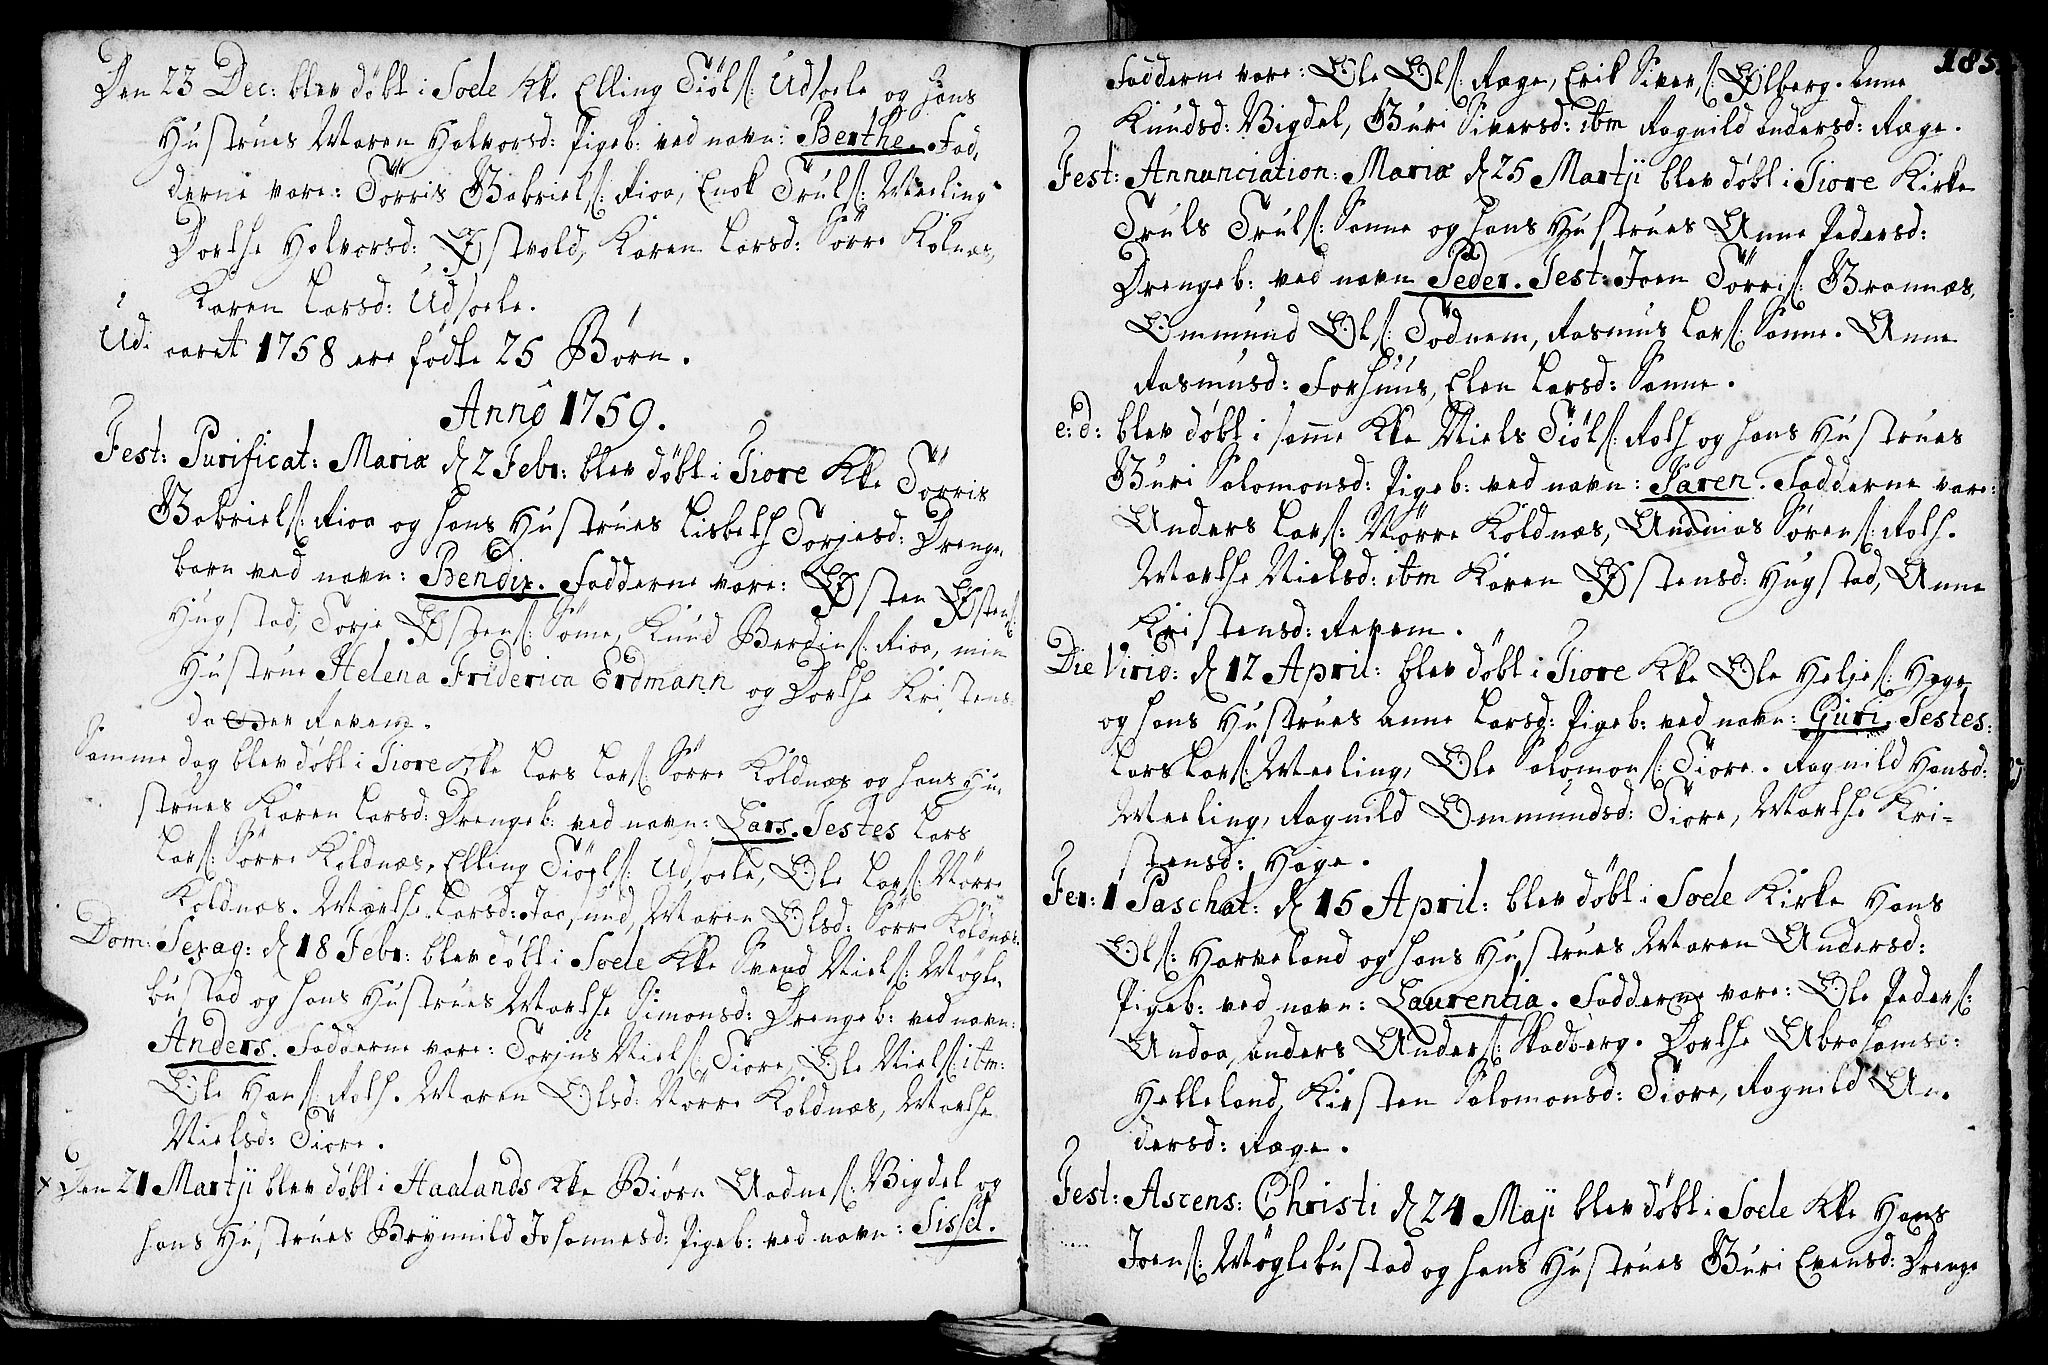 Den 23 Dec: blev døbt i Soele Kke Elling Tiøls: Udsoele og hans
Hustrues Maren Halvorsd: Pigeb: ved navn: Berthe. Fad,
derne vare: Törris Gabriels: Risa, Enok Truls: Meeling
Dorthe Halvorsd: Østvold, Karen Larsd: Sörre Kolnæs,
Karen Larsd: Udsoele.
Udi aaret 1758 ere födte 25 Börn.
Anno 1759.
Fest: Purificat: Mariæ d 2 Febr: blev döbt i Tiore Kke Törris
Gabriels: Risa og hans Hustrues Lisbeth Torjesd: Drenge,
barn ved navn: Bendix. Fadderne vare: Østen Østens:
Hugstad, Torje Østens: Sőme, Knud Berdins: Risa, min
Hustrue Helena Friderica Erdmann og Dorthe Kristens
da Revem.
Samme dag blev döbt i Tiore Kke Lars Lars: Sörre Koldnæs og hans Hu,
strues Karen Larsd: Drengeb: ved navn: Lars. Testes Lars
Lars: Sörre Koldnæs, Elling Tiöls: Udsoele, Ole Lars: Nörre
Koldnæs. Marthe Larsd: Jaasund, Maren Olsd: Sörre Koldnæs.
Dom: Sexag: d 18 Febr: blev döbt i Soele Kke Svend Niels: Mögle,
bustad og hans Hustrues Marthe Simonsd: Drengeb: ved navn:
Anders. Fadderne vare: Torjus Niels: Tiore, Ole Niels: ibm:
Ole Hans: Roth. Maren Olsd: Nörre Koldnæs, Marthe
Nielsd: Tiore.
x Den 21 Martji blev döbt i Haalands Kke Biörn Aadnes: Vigdel og
hans Hustrues Brynnild Johannesd: Pigeb: ved navn: Sissel.
185.
Fadderne vare: Ole Ols: Ræge, Erik Sivers: Ølberg. Anne
Knudsd: Vigdel, Guri Siversd: ibm Ragnild Andersd: Ræge.
Fest: Annunciation: Mariæ d 25 Martji blev döbt i Tiore Kirke
Truls Truls: Sanne og hans Hustrues Anne Pedersd:
Drengeb: ved navn Peder. Test: Joen Törris: Grannæs,
Ommund Ols: Tödnem, Rasmus Lars: Sanne. Anne
Rasmusd: Forhuus, Elen Larsd: Sanne.
e: d: blev döbt i samme Kke Niels Tiöls: Roth og hans Hustrues
Guri Salomonsd: Pigeb: ved navn: Karen. Fadderne vare:
Anders Lars: Nörre Koldnæs, Andreas Sörens: Roth.
Marthe Nielsd: ibm Karen Østensd: Hugstad, Anne
Kristensd: Revem.
Die Virid: d 12 April: blev döbt i Tiore Kke Ole Heljes: Hage
og hans Hustrues Anne Larsd: Pigeb: ved navn: Guri. Testes:
Lars Lars: Meeling, Ole Salomons: Tiore. Ragnild Hansd:
Meeling, Ragnild Ommundsd: Tiore, Marthe Kri-
stensd: Hage.
Fer: 1 Paschat: d 15 April: blev döbt i Soele Kirke Hans
Ols: Harveland og hans Hustrues Maren Andersd:
Pigeb: ved navn: Laurentia. Fadderne vare: Ole Peders:
Andaa, Anders Anders: Skadberg. Dorthe Abrahamsd:
Helleland, Kirsten Salomonsd: Tiore, Ragnild An-
dersd: Ræge.
Fest: Ascens: Christi d 24 Maji blev döbt i Soele Kke Hans
Joens: Möglebustad og hans Hustrues Guri Evensd: Drenge